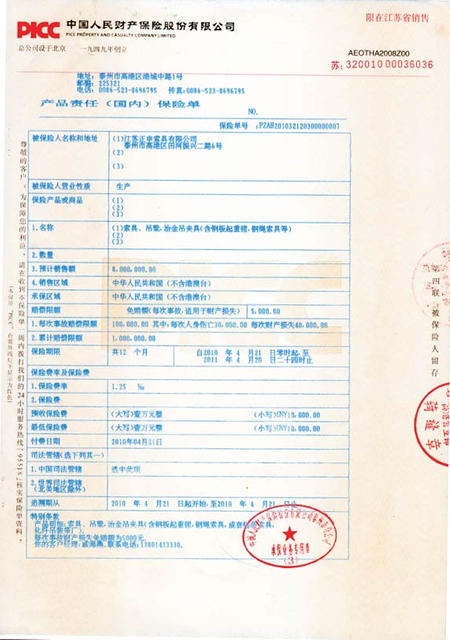 PICC 中国人民财产保险股份有限公司
PICC PROPERTY AND CASUALTY COMPANY LIMITED
总公司设于北京 一九四九年创立
限在江苏省销售
AEOTHA2008Z00
苏: 32001000036036
地址: 泰州市高港区港城中路1号
邮编: 225321
电话: 0086-523-8696795 传真: 0086-523-8696795
产品责任(国内)保险单
NO.
保险单号: PZAH201032120300000007
被保险人名称和地址
(1)江苏正申索具有限公司
泰州市高港区田河振兴二路6号
(2)
(3)
被保险人营业性质 生产
保险产品或商品
(1)
(2)
(3)
1.名称
(1)索具、吊装、冶金吊夹具(含钢板起重钳, 钢绳索具等)
(2)
(3)
2.数量
3.预计销售额 8,000,000.00
4.销售区域 中华人民共和国(不含港澳台)
承保区域 中华人民共和国(不含港澳台)
赔偿限额 免赔额(每次事故:适用于财产损失) 5,000.00
1.每次事故赔偿限额 100,000.00 其中:每次人身伤亡 每次财产损失
2.累计赔偿限额 1,000,000.00
保险期限 共12 个月
自2010 年 4 月 21 日零时起,至
2011 年 4 月 20 日二十四时止
保险费率及保险费
1.保险费率 1.25 ‰
2.保险费
预收保险费 (大写)壹万元整 (小写)CNY)
最低保险费 (大写)壹万元整 (小写)CNY)
付费日期 2010年04月21日
司法管辖(选下列其一)
1.中国司法管辖 选中此项
2.世界司法管辖
(北美地区除外)
追溯期从 2010 年 4 月 21 日起开始,至2010 年 4 月 21 日止
特别条款
产品明细:索具、吊装、冶金吊夹具(含钢板起重钳,钢绳索具,
化纤吊装带厂)。
每次事故财产损失免赔额为5000元。
联系电话:13801413330。
承保业务专用章
(3)
第四联:被保险人留存
尊敬的客户:为保障您的利益,请在收到本保险单一周内拨打我们的24小时服务热线(95518)核实保险单资料。